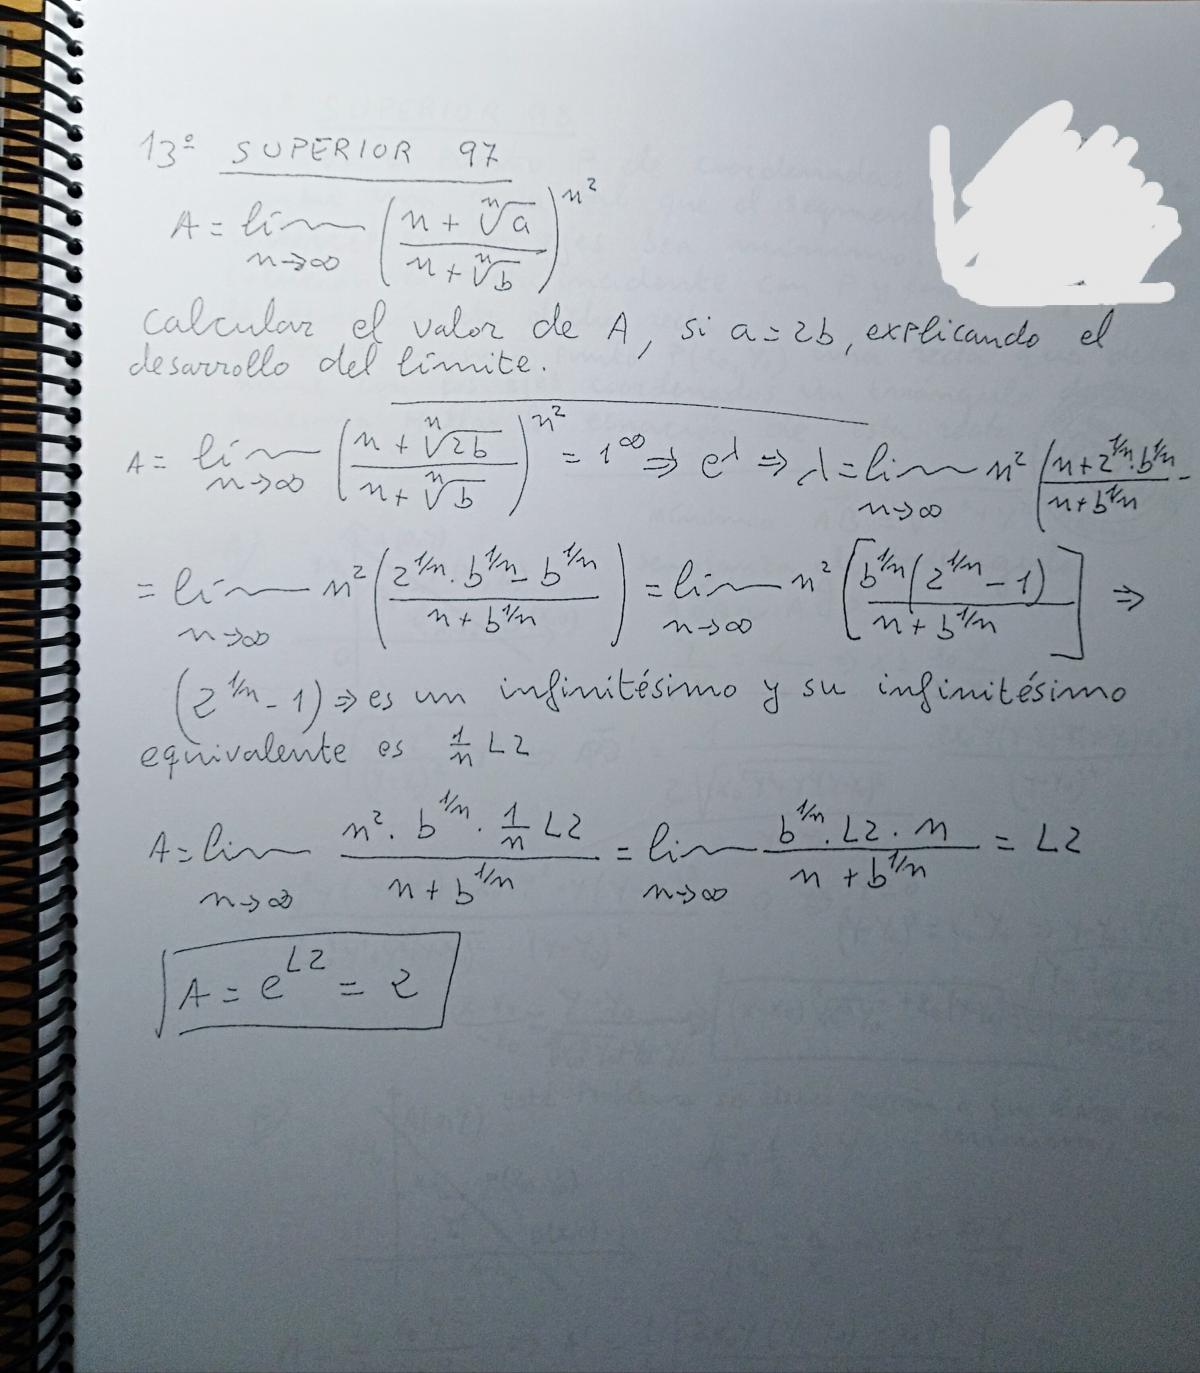 13º SUPERIOR 97
A = lím n→∞ ((n + ⁿ√a)/(n + ⁿ√b))^n²
Calcular el valor de A, si a = 2b, explicando el
desarrollo del límite.
A = lím n→∞ ((n + ⁿ√2b)/(n + ⁿ√b))^n² = 1^∞ ⇒ e^λ ⇒ λ = lím n→∞ n² ((n + 2^1/n · b^1/n)/(n + b^1/n) -
= lím n→∞ n² ((2^1/n · b^1/n - b^1/n)/(n + b^1/n)) = lím n→∞ n² [(b^1/n (2^1/n - 1))/(n + b^1/n)] ⇒
(2^1/n - 1) ⇒ es un infinitésimo y su infinitésimo
equivalente es 1/n L2
A = lím n→∞ (n² · b^1/n · 1/n L2)/(n + b^1/n) = lím n→∞ (b^1/n · L2 · n)/(n + b^1/n) = L2
A = e^L2 = 2